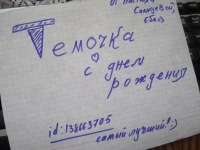 Темочка
с днем
рождения
id:138663705
самый лучший!:)